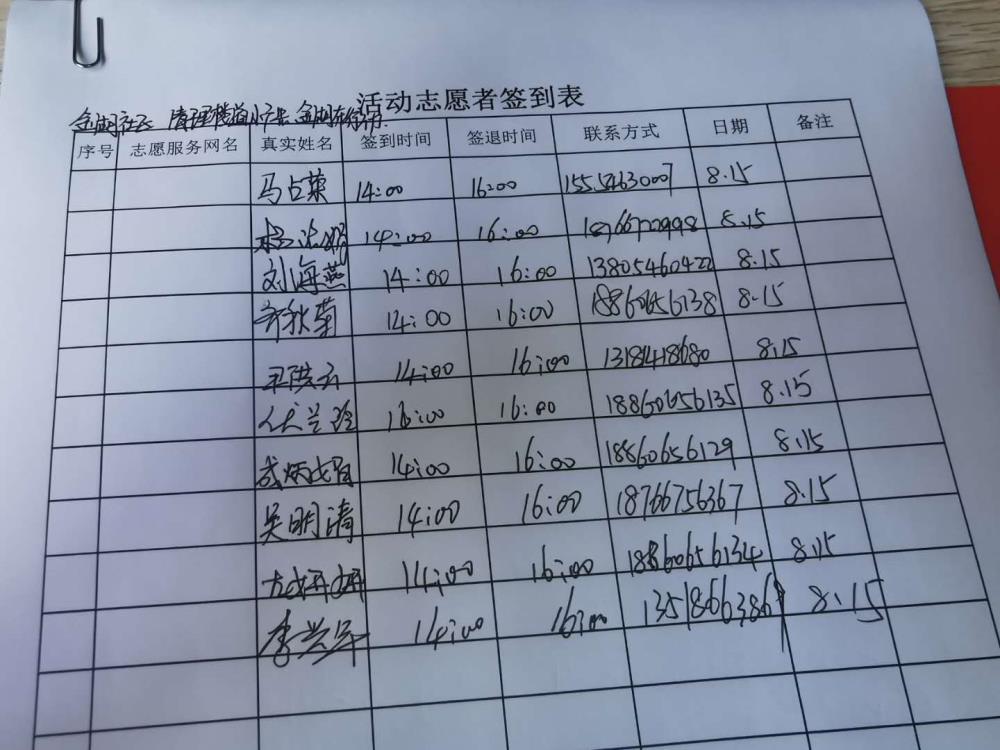 活动志愿者签到表
金湖社区 清理楼道小广告
序号 志愿服务网名 真实姓名 签到时间 签退时间 联系方式 日期 备注
马占荣 14:00 16:00 15554630007 8.15
14:00 16:00 8.15
刘海燕 14:00 16:00 13805460422 8.15
齐秋菊 14:00 16:00 18860656138 8.15
王洪云 14:00 16:00 13181418680 8.15
16:00 16:00 18860656135 8.15
14:00 16:00 18860656129 8.15
吴明清 14:00 16:00 18766756367 8.15
14:00 16:00 18860656134 8.15
李兴军 14:00 16:00 8.15